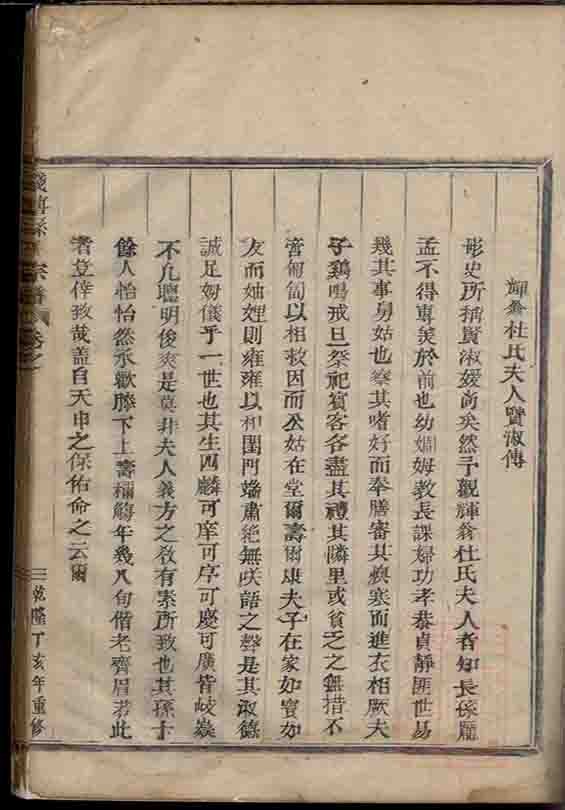 輝翁杜氏夫人賢淑傳
彤史所稱賢淑媛尚矣然予觀輝翁杜氏夫人者知長孫龐
孟不得專美於前也幼嫺姆教長課婦功孝恭貞靜匪世易
幾其事舅姑也察其嗜好而奉膳審其燠寒而進衣相厥夫
子鷄鳴戒旦祭祀賓客各盡其禮其隣里或貧乏之無措不
啻匍匐以相救因而公姑在堂爾壽爾康夫子在家如賓如
友而妯娌則雍雍以和閨門端肅絶無咲語之聲是其淑德
誠足姆儀乎一世也其生四麟可庠可序可慶可廣皆岐嶷
不凡聰明俊爽是莫非夫人義方之敎有素所致也其孫十
餘人怡怡然承歡膝下上壽稱觴年幾八旬偕老齊眉若此
者豈倖致哉葢自天申之保佑命之云爾
宗譜 卷之
乾隆丁亥年重修